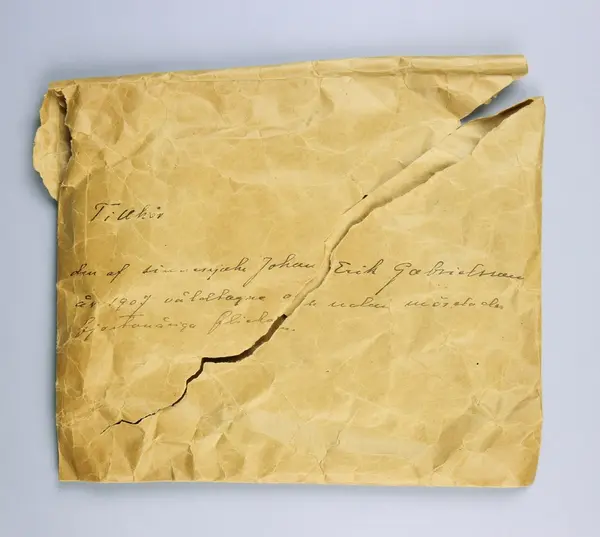 Tillhör
den af sinnessjuke Johan Erik Gabrielsson
år 1907 våldtagna och mördade
flickan.